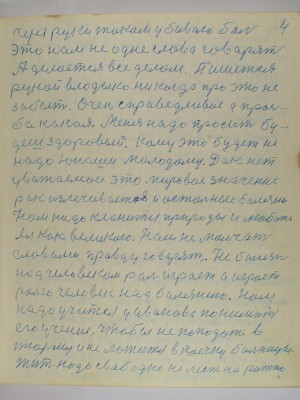 4
через руки током убивало бал
Это нам не одне слова говарят
А делается все делом. Пишется
рукой владыко никогда про это не
забыт. Очен справедливая а прозь-
ба какая. Меня надо просит бу-
деш здоровый. Кому это будет не
надо юноши молодому. Дак нет
уважаемаи это мировое значение
рак излечивается и остальные болезни
Нам надо кланится природы и любить
як как великого. Нам не молчат
словами правду говарят. Не болезн
над человеком рол играет а играет
ролю человек над болезнию. Нам
надо учится у иванова понимат
его учение, чтобы не попадат в
тюрму и не ложится в коечку больницы.
Жит надо свабодно не лест на